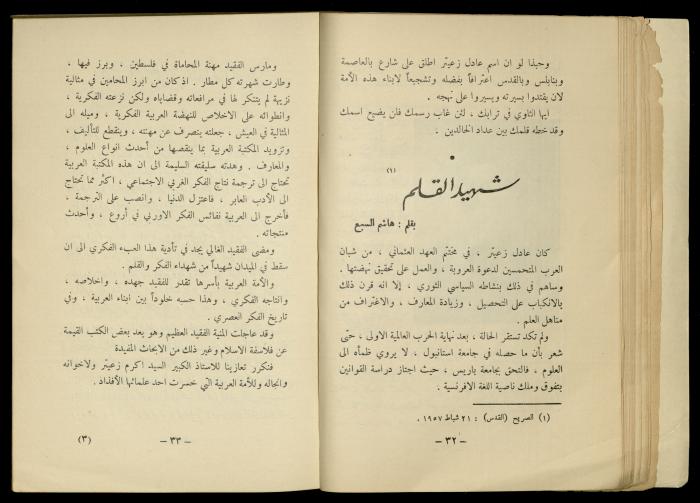 وحبذا لو ان اسم عادل زعيتر اطلق على شارع بالعاصمة
وبنابلس وبالقدس اعترافاً بفضله وتشجيعاً لابناء هذه الأمة
لان يقتدوا بسيرته ويسيروا على نهجه .
ايها الثاوي في ترابك ، لئن غاب رسمك فلن يضيع اسمك
وقد خطه قلمك بين عداد الخالدين .
شهيد القلم (١)
بقلم : هاشم السبع
كان عادل زعيتر ، في مختتم العهد العثماني ، من شبان
العرب المتحمسين لدعوة العروبة ، والعمل على تحقيق نهضتها .
وساهم في ذلك بنشاطه السياسي الثوري ، إلا انه قرن ذلك
بالانكباب على التحصيل ، وزيادة المعارف ، والاغتراف من
مناهل العلم .
ولم تكد تستقر الحالة ، بعد نهاية الحرب العالمية الاولى ، حتى
شعر بأن ما حصله في جامعة استانبول ، لا يروي ظمأه الى
العلوم ، فالتحق بجامعة باريس ، حيث اجتاز دراسة القوانين
بتفوق وملك ناصية اللغة الافرنسية .
(١) الصريح (القدس) : ٢١ شباط ١٩٥٧ .
– ٣٢ –
ومارس الفقيد مهنة المحاماة في فلسطين ، وبرز فيها ،
وطارت شهرته كل مطار . اذ كان من ابرز المحامين في مثالية
نزيهة لم يتنكر لها في مرافعاته وقضاياه ولكن نزعته الفكرية ،
وانطوائه على الاخلاص للنهضة العربية الفكرية ، وميله الى
المثالية في العيش ، جعلته ينصرف عن مهنته ، وينقطع للتأليف ،
وتزويد المكتبة العربية بما ينقصها من أحدث انواع العلوم ،
والمعارف . وهدته سليقته السليمة الى ان هذه المكتبة العربية
تحتاج الى ترجمة نتاج الفكر الغربي الاجتماعي ، اكثر مما تحتاج
الى الأدب العابر ، فاعتزل الدنيا ، وانصب على الترجمة ،
فأخرج الى العربية نفائس الفكر الاوربي في أروع ، وأحدث
منتجاته .
ومضى الفقيد الغالي يجد في تأدية هذا العبء الفكري الى ان
سقط في الميدان شهيداً من شهداء الفكر والقلم .
والأمة العربية بأسرها تقدر للفقيد جهده ، واخلاصه ،
وانتاجه الفكري ، وهذا حسبه خلوداً بين ابناء العربية ، وفي
تاريخ الفكر العصري .
وقد عاجلت المنية الفقيد العظيم وهو يعد بعض الكتب القيمة
عن فلاسفة الاسلام وغير ذلك من الابحاث المفيدة
فنكرر تعازينا للاستاذ الكبير السيد اكرم زعيتر ولاخوانه
وانجاله وللأمة العربية التي خسرت احد علمائها الأفذاذ .
– ٣٣ –
(٣)